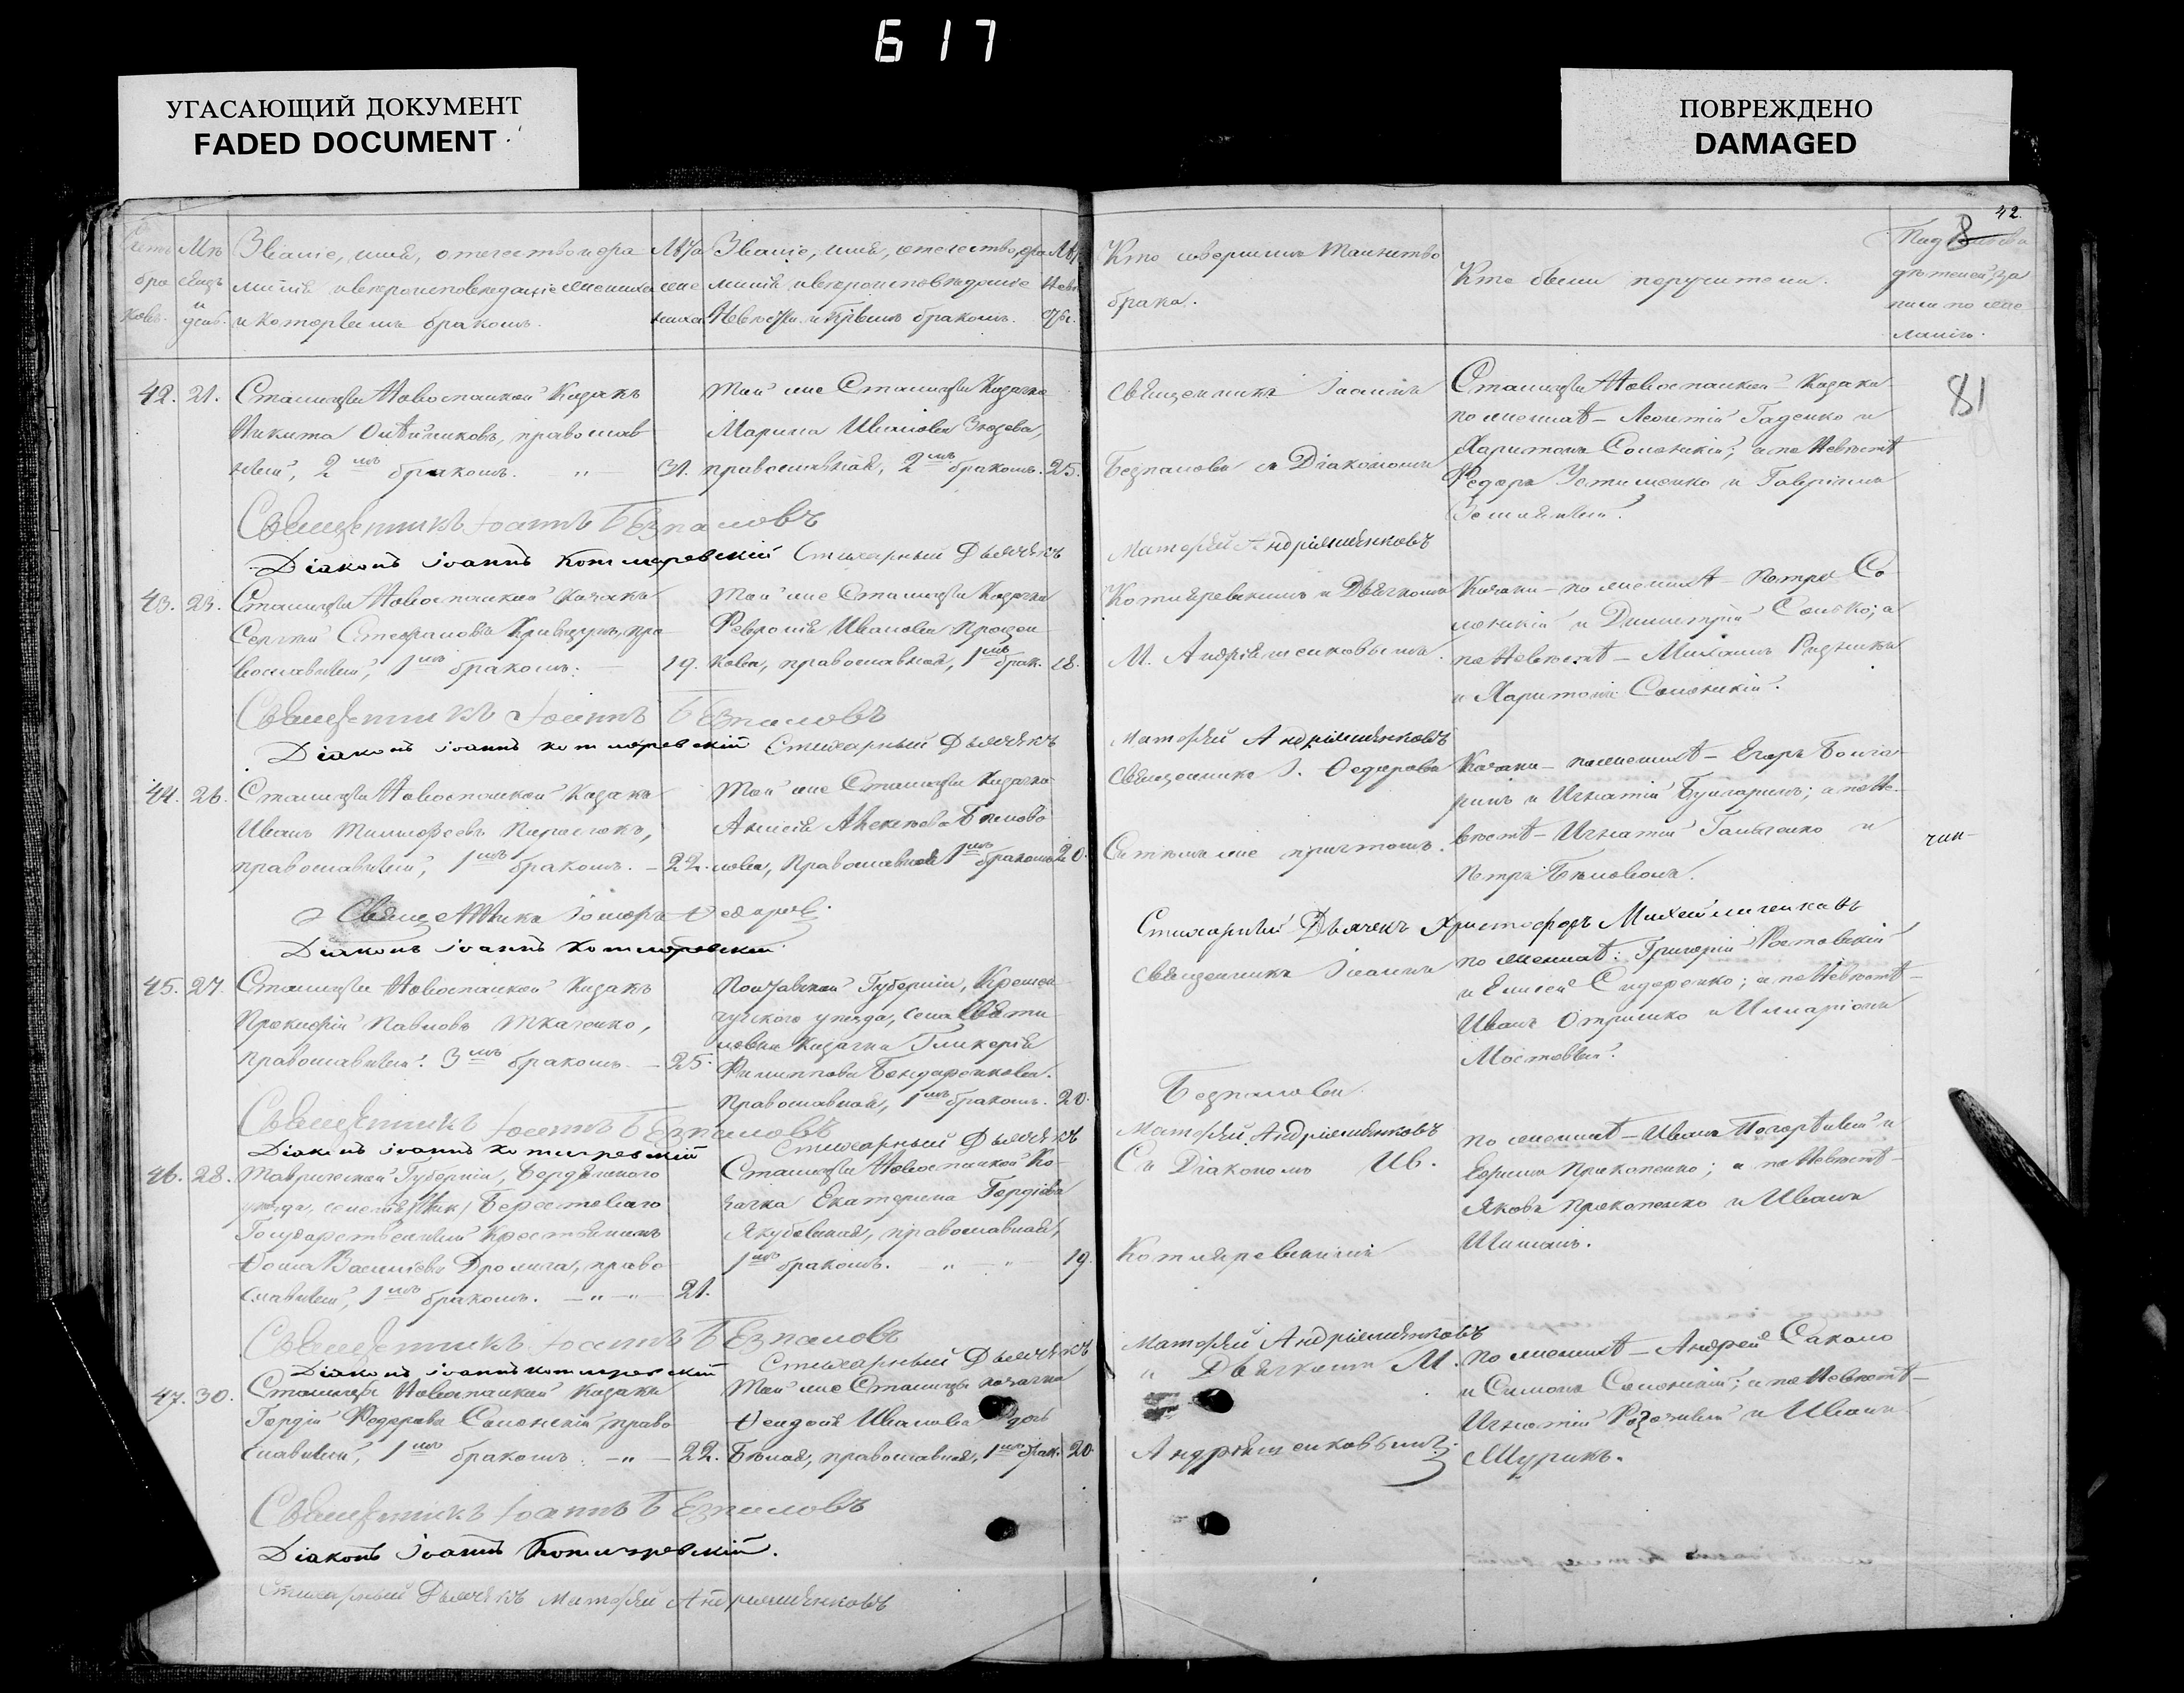 617
УГАСАЮЩИЙ ДОКУМЕНТ
FADED DOCUMENT
ПОВРЕЖДЕНО
DAMAGED
42.
Званіе, имя, отечество, фа
милія и вероисповеданіе жениха
и которымъ бракомъ.
Званіе, имя, отечество, фа
милія и вероисповеданіе
Невесты и крымъ бракомъ.
Кто совершилъ Таинство
брака.
Кто были поручители.
81
42. 21. Станицы Новоспаской Казакъ
Никита православ
ный, 2мъ бракомъ. 31.
Той же Станицы Казачка
Марина Иванова
православная, 2мъ бракомъ. 25.
Священникъ Іоаннъ
Безпаловъ съ Діакономъ
Станицы Новоспаской Казаки
по женихѣ – Леонтій Гаденко и
Харитонъ Солонскій; а по Невѣстѣ
Федоръ Устименко и Гавріилъ
Священникъ Іоаннъ Безпаловъ
Діаконъ Іоаннъ Котляревскій Стихарный Дьячекъ
Матофей Андріяшенковъ
43. 23. Станицы Новоспаской Казакъ
Сергій Стефановъ Кривцунъ, пра
вославный, 1мъ бракомъ. 19.
Той же Станицы Казачка
Февронія Иванова Процен
кова, православная, 1мъ брак. 18.
Котляревскимъ и Дьячкомъ
М. Андріяшенковымъ.
Казаки – по женихѣ – Петръ Со
лонскій и Димитрій а
по Невѣстѣ – Михаилъ
и Харитонъ Солонскій.
Священникъ Іоаннъ Безпаловъ
Діаконъ Іоаннъ Котляревскій Стихарный Дьячекъ
Матофей Андріяшенковъ
44. 26. Станицы Новоспаской Казакъ
Иванъ Тимофеевъ
православный, 1мъ бракомъ. – 22.
Той же Станицы Казачка
Анисія Алексеева Билово
лова, Православная 1мъ бракомъ 20.
Священникъ І. Федоровъ
Съ тѣмъ же причтомъ.
Казаки – по женихѣ – Егоръ Болга
ринъ и Игнатій Булгаринъ; а по Не
вѣстѣ – Игнатій и
Петръ Биловолъ.
Священникъ Федоровъ.
Діаконъ Іоаннъ Котляревскій
Стихарный Дьячекъ Христофоръ Михайличенковъ
45. 27. Станицы Новоспаской Казакъ
Прокофій Павловъ Ткаченко,
православный. 3мъ бракомъ – 25.
Полтавской Губерніи, Кремен
чугского уезда, села
Казачка Гликерія
Филиппова Бондаренкова.
православная, 1мъ бракомъ. 20.
Священникъ Іоаннъ
Безпаловъ
по женихѣ: Григорій Ростовскій
и Елисей Сидоренко; а по Невѣстѣ –
Иванъ и Илларіонъ
Мостовый.
Священникъ Іоаннъ Безпаловъ
Діаконъ Іоаннъ Котляревскій Стихарный Дьячекъ
Матофей Андріяшенковъ
46. 28. Таврической Губерніи, Бердянского
уезда, Берестоваго
Государственный Крестьянинъ
Фома Васильевъ Дролига, право
славный, 1мъ бракомъ. 21.
Станицы Новоспаской Ка
зачка Екатерина Гордіева
Якубовская, православная,
1мъ бракомъ. 19.
Съ Діакономъ Ив.
Котляревскимъ
по женихѣ – Иванъ Погорѣлый и
Ефимъ Прокопенко; а по Невѣстѣ –
Яковъ Прокопенко и Иванъ
Шиманъ.
Священникъ Іоаннъ Безпаловъ
Діаконъ Іоаннъ Котляревскій Стихарный Дьячекъ
Матофей Андріяшенковъ
47. 30. Станицы Новоспаской Казакъ
Гордій Федоровъ Солонскій, право
славный, 1мъ бракомъ – 22.
Той же Станицы казачка
Феодосія Иванова
православная, 1мъ брак. 20.
" Дьячкомъ М.
Андріяшенковымъ.
по женихѣ – Андрей Сакало
и Симонъ Солонскій; а по Невѣстѣ –
Игнатій и Иванъ
Шурикъ.
Священникъ Іоаннъ Безпаловъ
Діаконъ Іоаннъ Котляревскій.
Стихарный Дьячекъ Матофей Андріяшенковъ